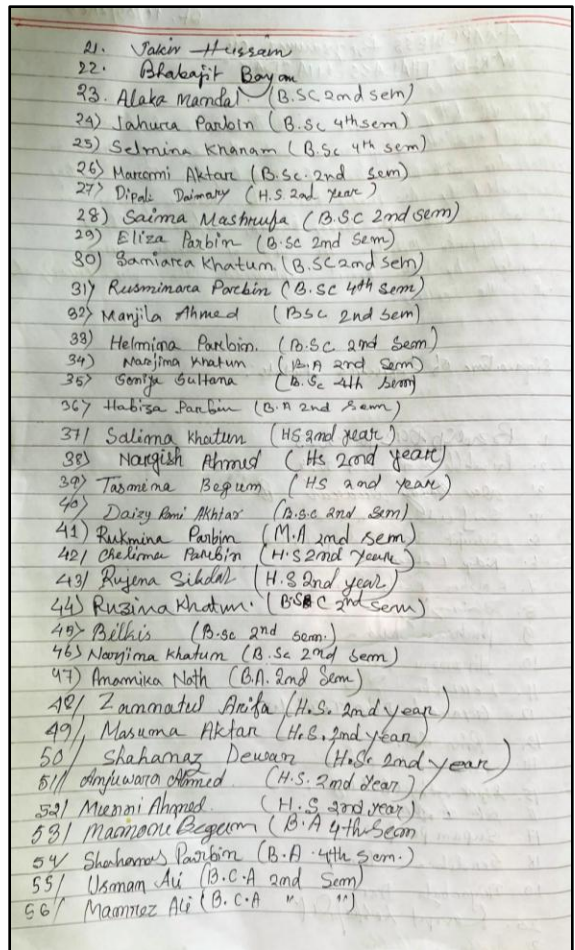 21. Jakir Hussain
22. Bhabajit Bayan
23. Alaka Mandal (B.SC 2nd sem)
24) Jahura Parbin (B.Sc 4th sem)
25) Selmina Khanam (B.Sc 4th sem)
26) Maromi Aktar (B.Sc. 2nd sem)
27) Dipali Daimary (H.S. 2nd year)
28) Saima Mashrufa (B.SC 2nd sem)
29) Eliza Parbin (B.SC 2nd Sem)
30) Saniara Khatun (B.SC 2nd sem)
31) Rusminara Parbin (B.SC 4th sem)
32) Manjila Ahmed (BSC 2nd sem)
33) Helmina Parbin. (B.SC 2nd Sem)
34) Narjima Khatun (B.A 2nd Sem)
35) Soniya Sultana (B.Sc 4th sem)
36) Habiza Parbin (B.A 2nd Sem)
37/ Salima Khatun (HS 2nd year)
38) Nargish Ahmed (HS 2nd year)
39) Tasmina Begum (HS 2nd year)
40) Daizy Rani Akhtar (B.S.C 2nd Sem)
41) Rukmina Parbin (M.A 2nd sem)
42/ Chelima Parbin (H.S 2nd year)
43/ Rujena Sikdar (H.S 2nd year)
44) Ruzina Khatun. (BSC 2nd sem)
45) Bilkis (B.Sc 2nd sem.)
46) Narjima Khatun (B.Sc 2nd Sem)
47) Anamika Nath (BA. 2nd Sem)
48/ Zannatul Arifa (H.S. 2nd year)
49/ Masuma Aktar (H.S. 2nd year)
50/ Shahanaz Dewan (H.S. 2nd year)
51/ Anjuwara Ahmed (H.S. 2nd Year)
52/ Munni Ahmed. (H.S 2nd year)
53/ Begum (B.A 4th Sem
54/ Shahanas Parbin (B.A. 4th Sem.)
55/ Usman Ali (B.C.A 2nd Sem)
56/ Mamrez Ali (B.C.A " ")